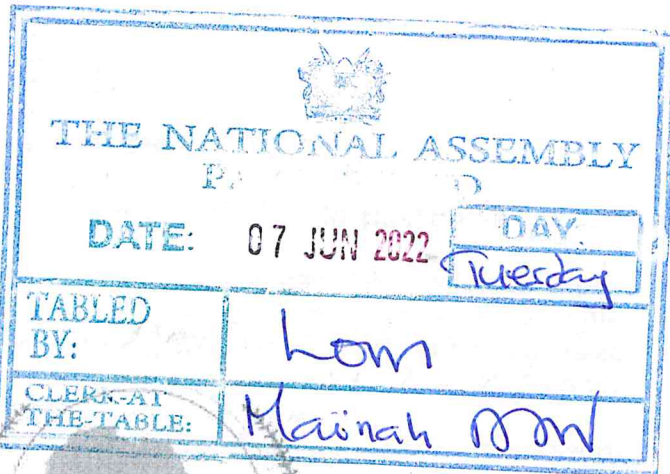 THE NATIONAL ASSEMBLY
DATE: 07 JUN 2022 DAY.
Tuesday
TABLED BY: LOM
CLERK-AT THE-TABLE: Mainah